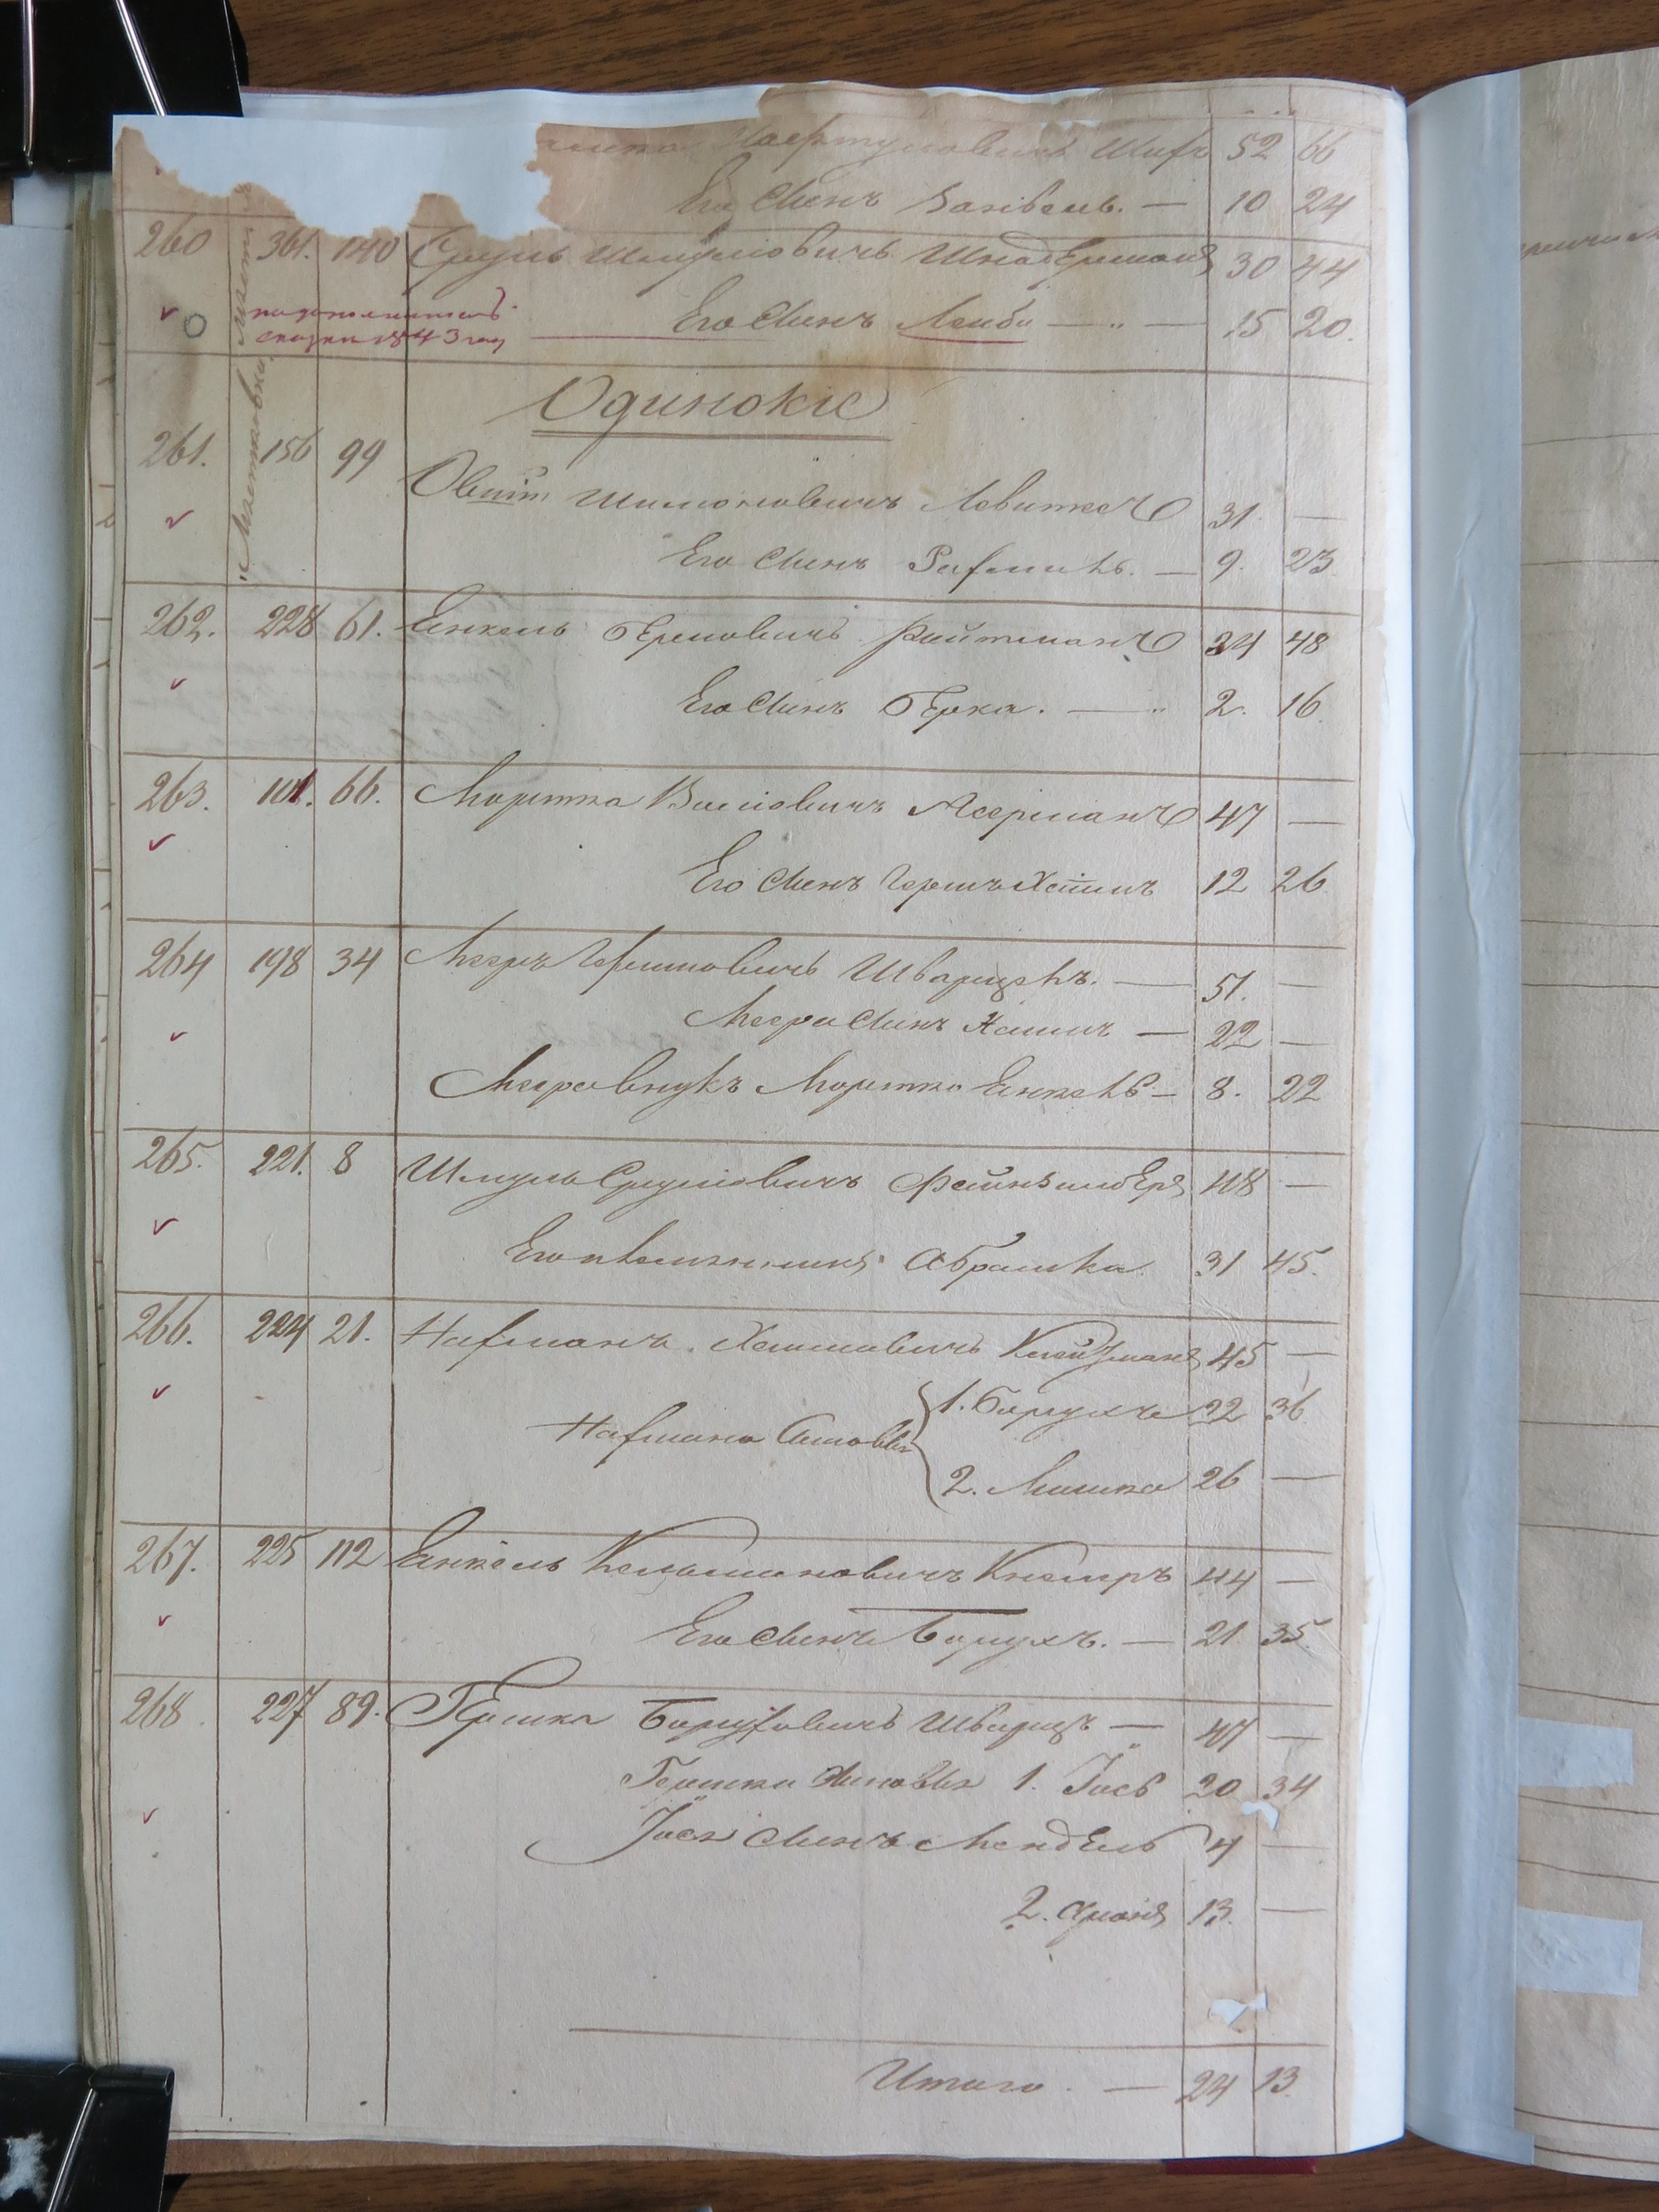 Шифр 52 66
Его Сынъ Занвель. — 10 24
260 361. 140 Сруль Шмулiовичъ Шнайдерманъ 30 44
по дополнительн. сказки 1843 году Его Сынъ Лейба — " — 15 20.
Одинокiе
261. 156 99 Овшiй Шимоновичъ Левитанъ 31. —
Его Сынъ Рафаилъ. — 9. 23
262. 228 61. Янкель Берковичъ Ройтманъ 34 48
Его Сынъ Берка. — " 2. 16
263. 101. 66. Мортка Волiовичъ Аксерманъ 47 —
Его Сынъ Гершъ Хаимъ 12 26
264 198 34 Мееръ Гершковичъ Шварцель. — 51. —
Меера Сынъ Хаимъ — 22 —
Меера внукъ Мортко Янкель — 8. 22
265. 221. 8 Шмуль Срулiовичъ Файнзилберъ 48 —
Его племянникъ Абрамка 31 45.
266. 224 21. Нафманъ Хаимовичъ Клейзманъ 45 —
Нафмана Сыновья 1. Борухъ 22 36
2. Мошка 26 —
267. 225 112 Янкель Кельмановичъ 44 —
Его Сынъ Борухъ. — 21 35.
268. 227 89. Гершка Боруховичъ Шварцъ — 47 —
Гершки Сыновья 1. Iосъ 20 34
Iося Сынъ Мендель 4 —
2. 13. —
Итого. — 24 13.